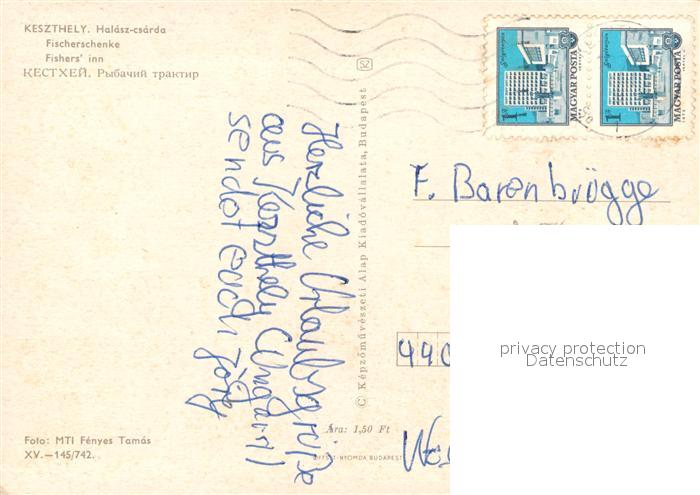 KESZTHELY. Halász-csárda
Fischerschenke
Fishers' inn
КЕСТХЕЙ. Рыбачий трактир
SZ
MAGYAR POSTA
1
MAGYAR POSTA
1
Herzliche Urlaubsgrüße
aus Keszthely (Ungarn)
sendet euch Jörg
© Képzőművészeti Alap Kiadóvállalata, Budapest
F. Barenbrügge
440
privacy protection
Datenschutz
Wes
Ára: 1,50 Ft
OFFSET-NYOMDA BUDAPEST
Foto: MTI Fényes Tamás
XV.—145/742.